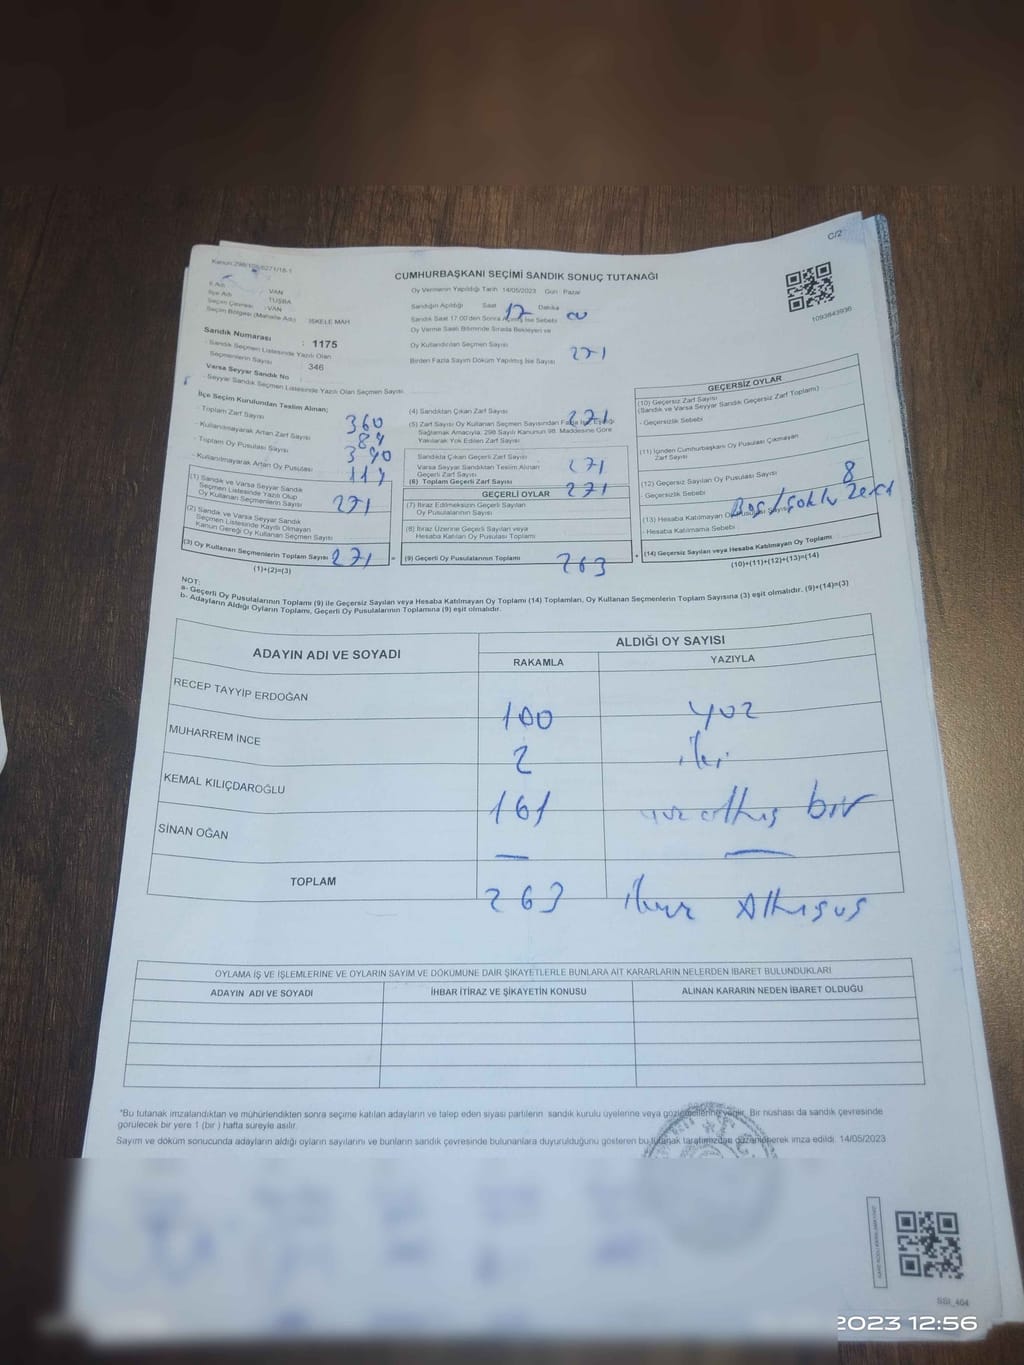 C/2
Kanun:298/105/6271/18-1
CUMHURBAŞKANI SEÇİMİ SANDIK SONUÇ TUTANAĞI
1093843936
İl Adı : VAN
İlçe Adı : TUŞBA
Seçim Çevresi : VAN
Seçim Bölgesi (Mahalle Adı) : İSKELE MAH
Oy Vermenin Yapıldığı Tarih 14/05/2023 Gün : Pazar
Sandığın Açıldığı Saat 17 Dakika
Sandık Saat 17:00'den Sonra Açılmış İse Sebebi
Oy Verme Saati Bitiminde Sırada Bekleyen ve
Oy Kullandırılan Seçmen Sayısı
271
Birden Fazla Sayım Döküm Yapılmış İse Sayısı
Sandık Numarası : 1175
- Sandık Seçmen Listesinde Yazılı Olan
Seçmenlerin Sayısı 346
Varsa Seyyar Sandık No
- Seyyar Sandık Seçmen Listesinde Yazılı Olan Seçmen Sayısı
İlçe Seçim Kurulundan Teslim Alınan;
- Toplam Zarf Sayısı 360
- Kullanılmayarak Artan Zarf Sayısı 89
- Toplam Oy Pusulası Sayısı
- Kullanılmayarak Artan Oy Pusulası
(1) Sandık ve Varsa Seyyar Sandık
Seçmen Listesinde Yazılı Olup
Oy Kullanan Seçmenlerin Sayısı 271
(2) Sandık ve Varsa Seyyar Sandık
Seçmen Listesinde Kayıtlı Olmayan
Kanun Gereği Oy Kullanan Seçmen Sayısı
(3) Oy Kullanan Seçmenlerin Toplam Sayısı 271
(1)+(2)=(3)
(4) Sandıktan Çıkan Zarf Sayısı 271
(5) Zarf Sayısı Oy Kullanan Seçmen Sayısından Fazla İse Eşitliği
Sağlamak Amacıyla, 298 Sayılı Kanunun 98. Maddesine Göre
Yakılarak Yok Edilen Zarf Sayısı
Sandıkta Çıkan Geçerli Zarf Sayısı
Varsa Seyyar Sandıktan Teslim Alınan
Geçerli Zarf Sayısı 271
(6) Toplam Geçerli Zarf Sayısı 271
GEÇERLİ OYLAR
(7) İtiraz Edilmeksizin Geçerli Sayılan
Oy Pusulalarının Sayısı
(8) İtiraz Üzerine Geçerli Sayılan veya
Hesaba Katılan Oy Pusulası Toplamı
= (9) Geçerli Oy Pusulalarının Toplamı 263
GEÇERSİZ OYLAR
(10) Geçersiz Zarf Sayısı
(Sandık ve Varsa Seyyar Sandık Geçersiz Zarf Toplamı)
- Geçersizlik Sebebi
(11) İçinden Cumhurbaşkanı Oy Pusulası Çıkmayan
Zarf Sayısı
(12) Geçersiz Sayılan Oy Pusulası Sayısı 8
- Geçersizlik Sebebi
(13) Hesaba Katılmayan Oy Pusulası Sayısı
- Hesaba Katılmama Sebebi :
+ (14) Geçersiz Sayılan veya Hesaba Katılmayan Oy Toplamı
(10)+(11)+(12)+(13)=(14)
NOT:
a- Geçerli Oy Pusulalarının Toplamı (9) ile Geçersiz Sayılan veya Hesaba Katılmayan Oy Toplamı (14) Toplamları, Oy Kullanan Seçmenlerin Toplam Sayısına (3) eşit olmalıdır. (9)+(14)=(3)
b- Adayların Aldığı Oyların Toplamı, Geçerli Oy Pusulalarının Toplamına (9) eşit olmalıdır.
ADAYIN ADI VE SOYADI ALDIĞI OY SAYISI
RAKAMLA YAZIYLA
RECEP TAYYİP ERDOĞAN 100 yüz
MUHARREM İNCE 2 iki
KEMAL KILIÇDAROĞLU 161 yüz altmış bir
SİNAN OĞAN — —
TOPLAM 263
OYLAMA İŞ VE İŞLEMLERİNE VE OYLARIN SAYIM VE DÖKÜMÜNE DAİR ŞİKAYETLERLE BUNLARA AİT KARARLARIN NELERDEN İBARET BULUNDUKLARI
ADAYIN ADI VE SOYADI İHBAR İTİRAZ VE ŞİKAYETİN KONUSU ALINAN KARARIN NEDEN İBARET OLDUĞU
*Bu tutanak imzalandıktan ve mühürlendikten sonra seçime katılan adayların ve talep eden siyasi partilerin sandık kurulu üyelerine veya gözlemcilerine verilir. Bir nüshası da sandık çevresinde
görülecek bir yere 1 (bir ) hafta süreyle asılır.
Sayım ve döküm sonucunda adayların aldığı oyların sayılarını ve bunların sandık çevresinde bulunanlara duyurulduğunu gösteren bu tutanak tarafımızdan düzenlenerek imza edildi. 14/05/2023
SSI_404
2023 12:56